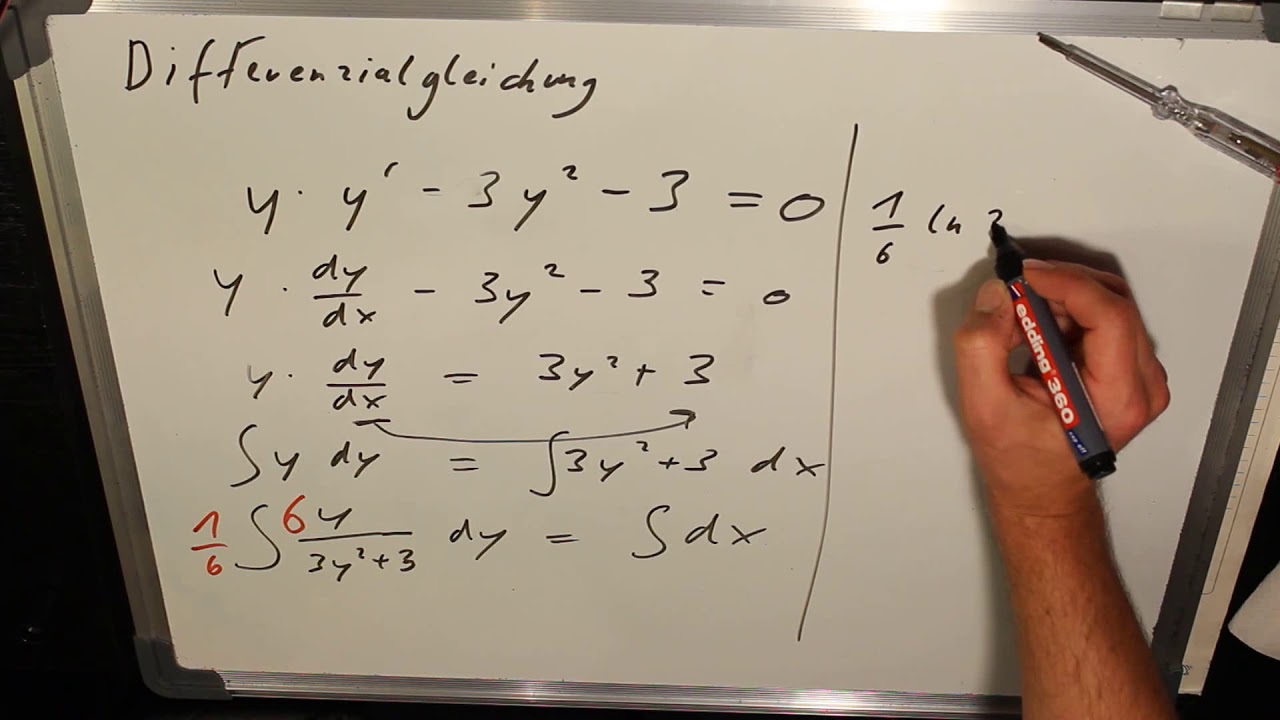 Differenzialgleichung
y · y' - 3y² - 3 = 0
y · dy/dx - 3y² - 3 = 0
y · dy/dx = 3y² + 3
∫y dy = ∫3y² + 3 dx
1/6 ∫ 6y/(3y² + 3) dy = ∫ dx
1/6 ln
edding 360